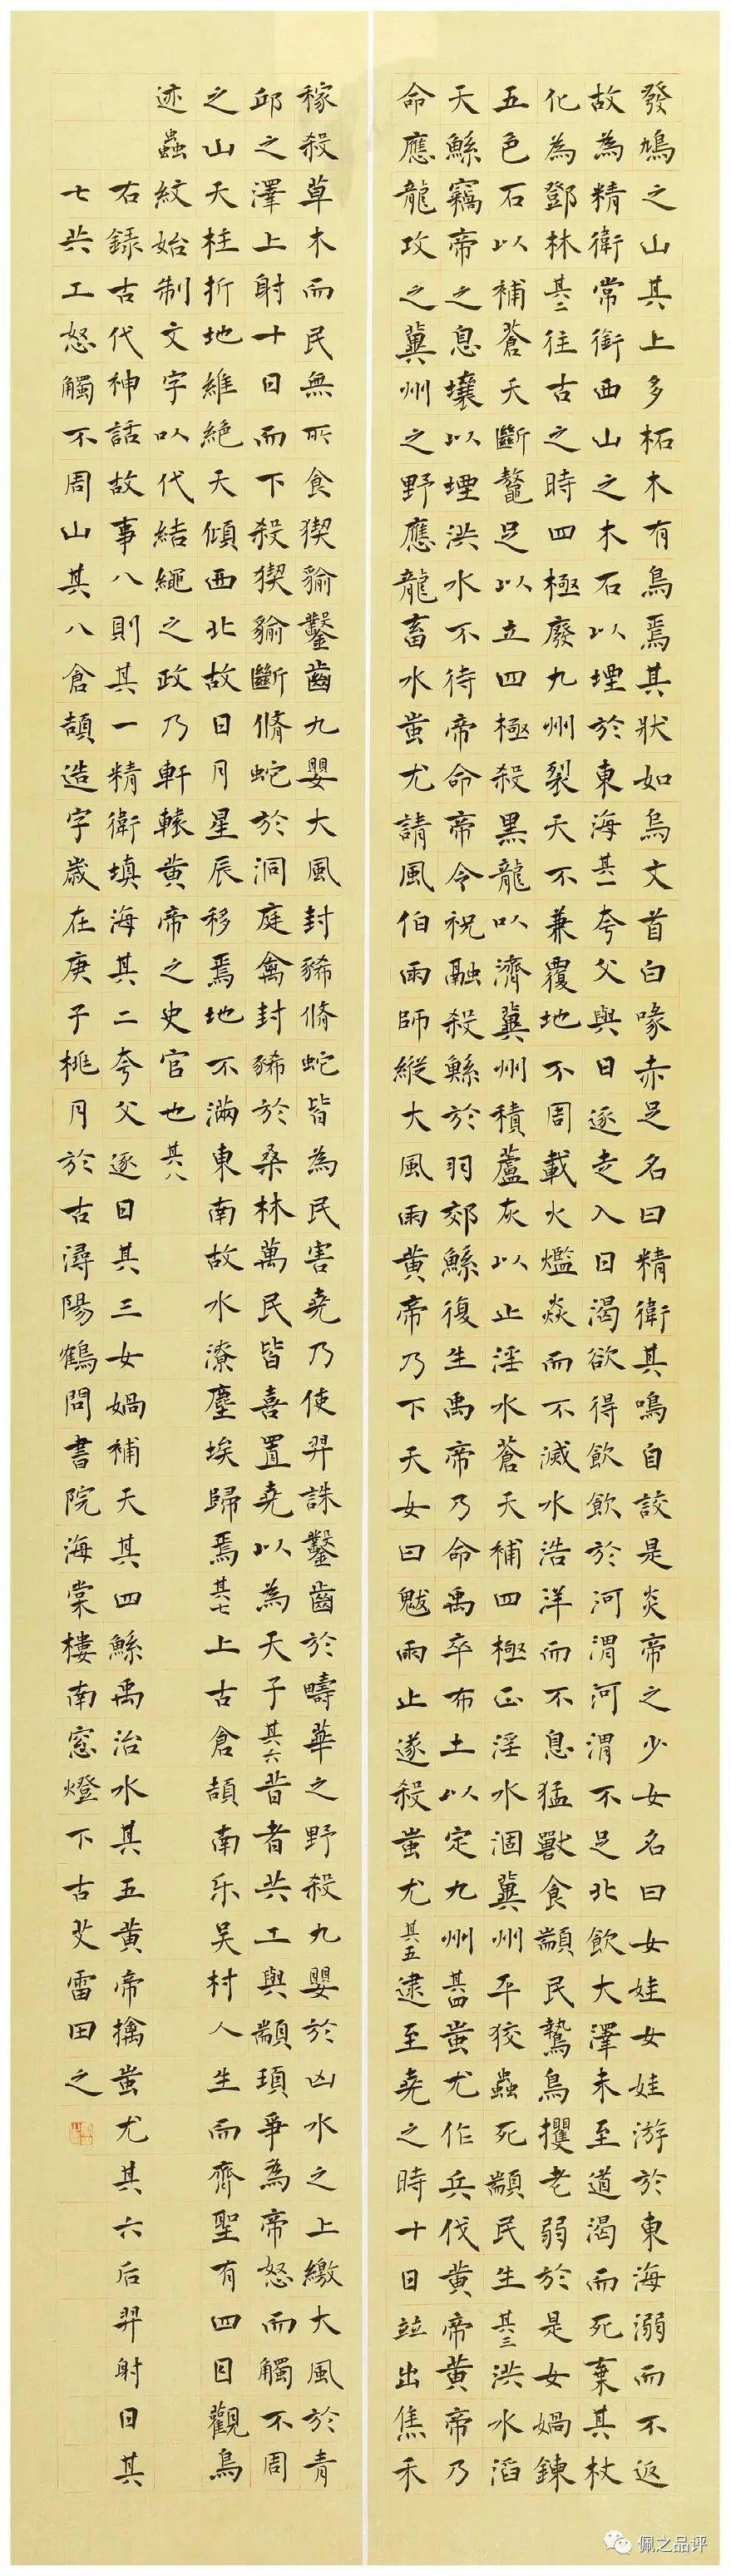 發鳩之山其上多柘木有鳥焉其狀如烏文首白喙赤足名曰精衛其鳴自詨是炎帝之少女名曰女娃女娃游於東海溺而不返
故為精衛常銜西山之木石以堙於東海其一夸父與日逐走入日渴欲得飲飲於河渭河渭不足北飲大澤未至道渴而死棄其杖
化為鄧林其二往古之時四極廢九州裂天不兼覆地不周載火爁焱而不滅水浩洋而不息猛獸食顓民鷙鳥攫老弱於是女媧鍊
五色石以補蒼天斷鼇足以立四極殺黑龍以濟冀州積蘆灰以止淫水蒼天補四極正淫水涸冀州平狡蟲死顓民生其三洪水滔
天鯀竊帝之息壤以堙洪水不待帝命帝令祝融殺鯀於羽郊鯀復生禹帝乃命禹卒布土以定九州其四蚩尤作兵伐黃帝黃帝乃
命應龍攻之冀州之野應龍畜水蚩尤請風伯雨師縱大風雨黃帝乃下天女曰魃雨止遂殺蚩尤其五逮至堯之時十日竝出焦禾
稼殺草木而民無所食猰貐鑿齒九嬰大風封豨脩蛇皆為民害堯乃使羿誅鑿齒於疇華之野殺九嬰於凶水之上繳大風於青
邱之澤上射十日而下殺猰貐斷脩蛇於洞庭禽封豨於桑林萬民皆喜置堯以為天子其六昔者共工與顓頊爭為帝怒而觸不周
之山天柱折地維絕天傾西北故日月星辰移焉地不滿東南故水潦塵埃歸焉其七上古倉頡南乐吴村人生而齊聖有四目觀鳥
迹蟲紋始制文字以代結繩之政乃軒轅黃帝之史官也其八
右錄古代神話故事八則其一精衛填海其二夸父逐日其三女媧補天其四鯀禹治水其五黃帝擒蚩尤其六后羿射日其
七共工怒觸不周山其八倉頡造字歲在庚子桃月於古潯陽鶴問書院海棠樓南窓燈下古艾雷田之
佩之品评